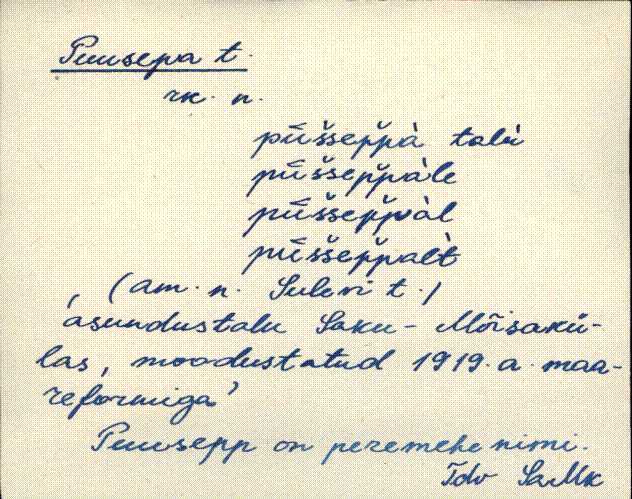 Puusepa t.
rk. n.
pū̆s̆sep̆pà talù
pū̆s̆sep̆pàle
pū̆s̆sep̆pàl
pū̆s̆sep̆palt̀
(am. n. Sulevi t.)
'asundustalu Saku-Mõisakü-
las, moodustatud 1919. a. maa-
reformiga'
Puusepp on peremehe nimi.
Tdv SaMk